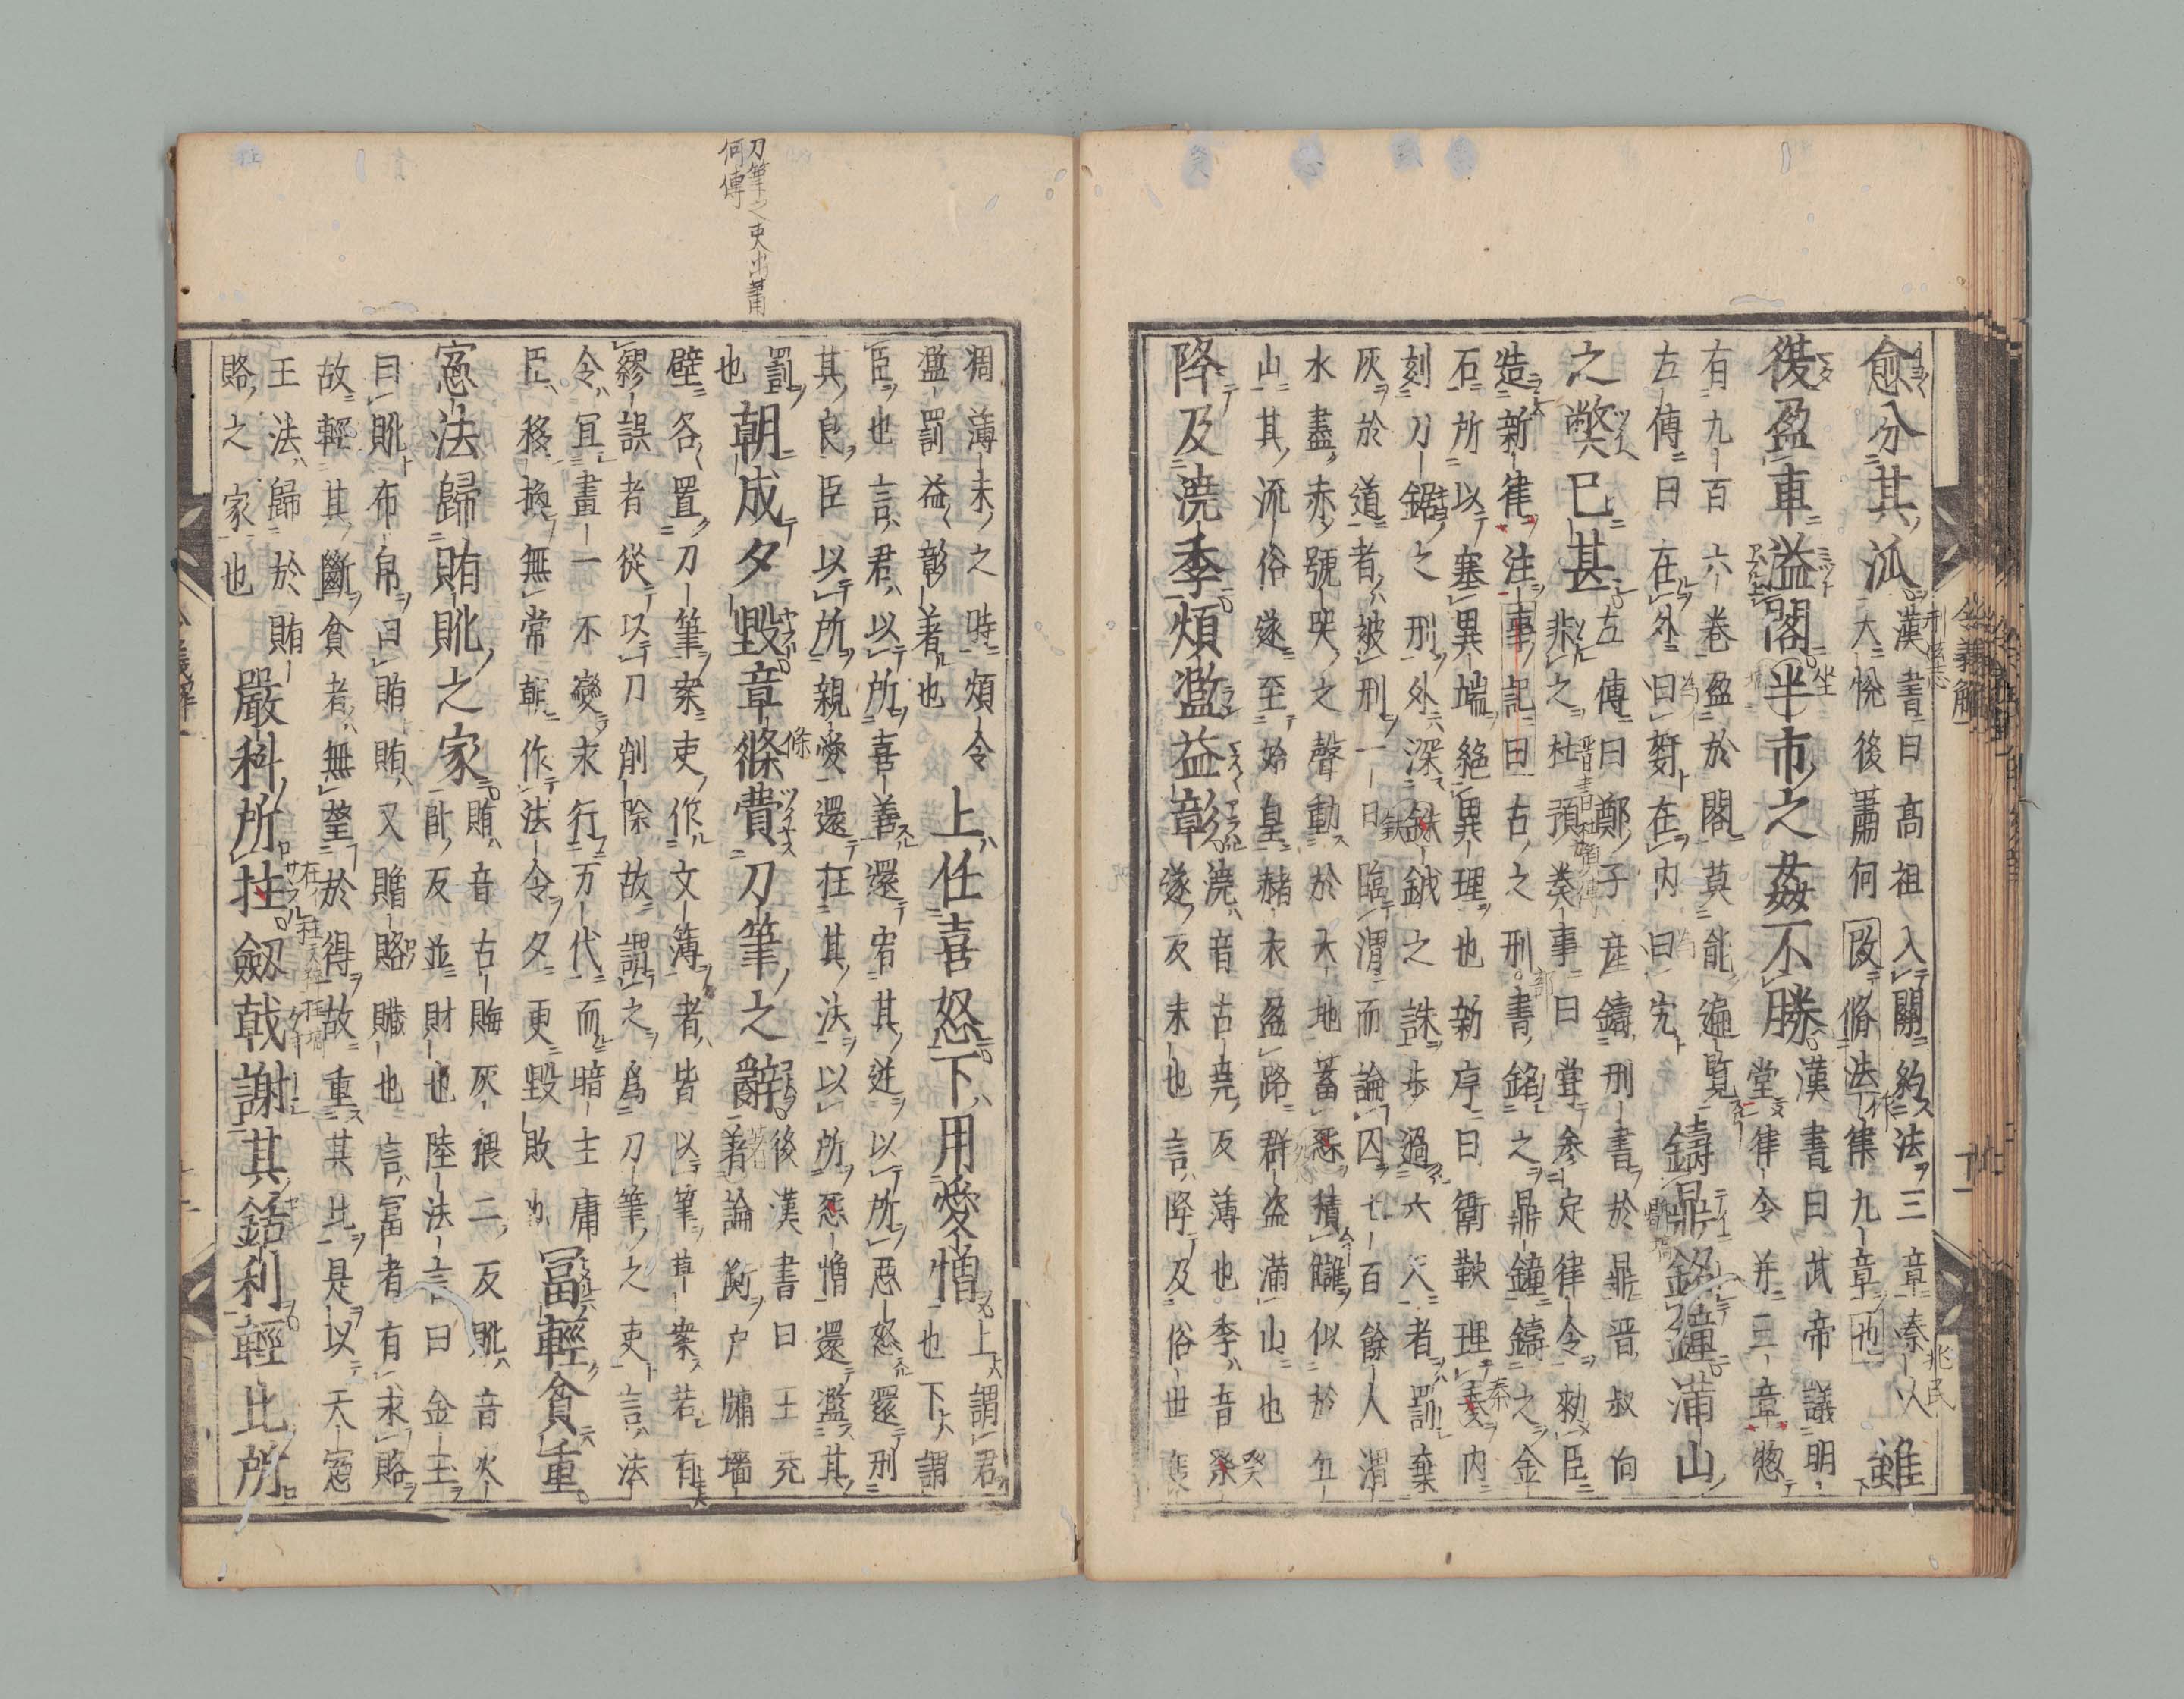 愈分其派
漢書曰高祖入關約法三章秦以
大悅後蕭何改脩法律九章也
雖
復盈車溢閣半市之姦不勝
漢書曰武帝議明
堂律令并三章惣
有九百六卷盈於閣莫能遍覽
左傳曰在外曰姧在內曰宄
鑄鼎銘鐘滿山
之弊已甚
左傳曰鄭子產鑄刑書於鼎晋叔向
非之杜預奏事曰甞參定律令勑臣
造新律注事記曰古之刑書銘之鼎鐘鑄之金
石所以塞異端絕異理也新序曰衛鞅理秦內
刻刀鋸之刑外深鈇鉞之誅步過六人者罰棄
灰於道者被刑一日臨渭而論囚七百餘人渭
水盡赤號哭之聲動於天地蓄惡積讎似於丘
山其流俗遂至始皇赭衣盈路群盗滿山也
降及澆季煩濫益彰
澆音古尭反薄也季音癸
遂反末也言降及俗世衰
凋薄末之時煩令
濫罰益彰著也
上任喜怒下用愛憎
上謂君
也下謂
臣也言君以所喜善還宥其迯以所惡怒還刑
其良臣以所親愛還枉其法以所惡憎還濫其
罰
也
朝成夕毀章條費刀筆之辭
後漢書曰王充
著論衡戶牖墻
壁各置刀筆案吏作文簿者皆以筆其案若有
繆誤者從以刀削除故謂之為刀筆之吏言法
令冝畫一不變求行万代而暗主庸
臣移換無常朝作法令夕更毀敗也
冨輕貧重
憲法歸賄貦之家
賄音古晦灰猥二反貦音火
卧反並財也陸法言曰金玉
曰貦布帛曰賄賄又贍賂贓也言冨者有求賂
故輕其斷貧者無望於得故重其比是以天憲
王法歸於賄
賂之家也
嚴科所拄劒戟謝其銛利輕比所
刀筆之吏出蕭
何傳